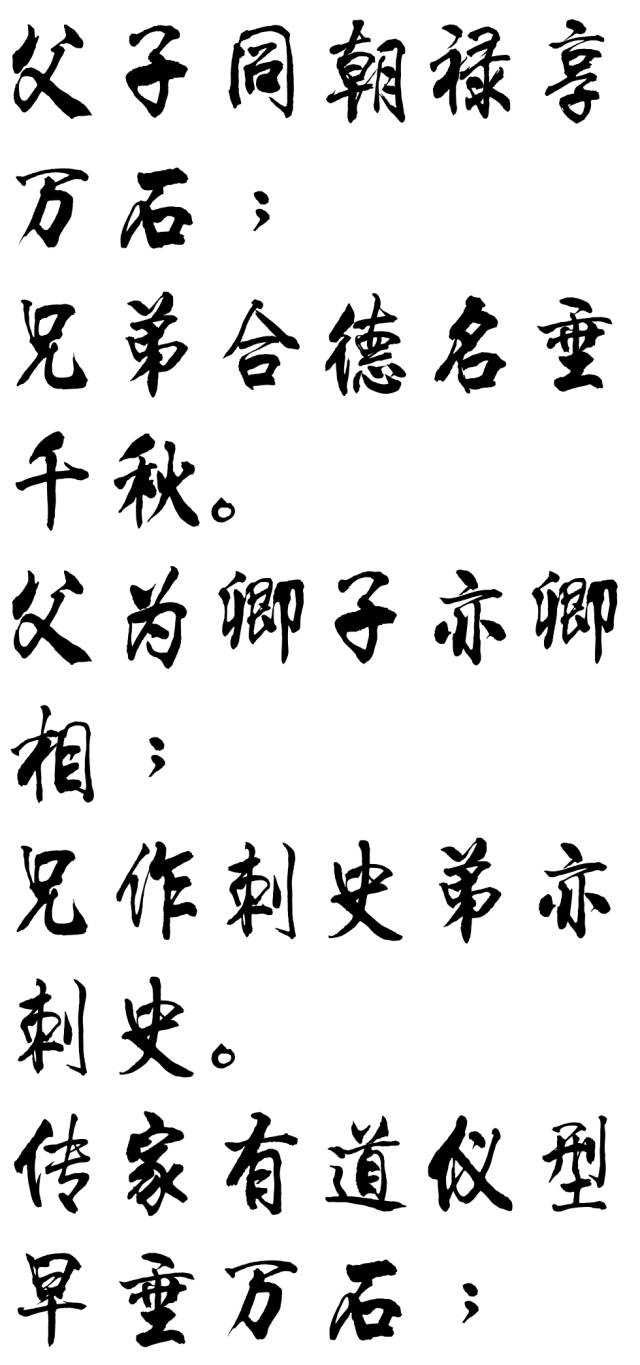 父子同朝禄享
万石；
兄弟合德名垂
千秋。
父为卿子亦卿
相；
兄作刺史弟亦
刺史。
传家有道仪型
早垂万石；